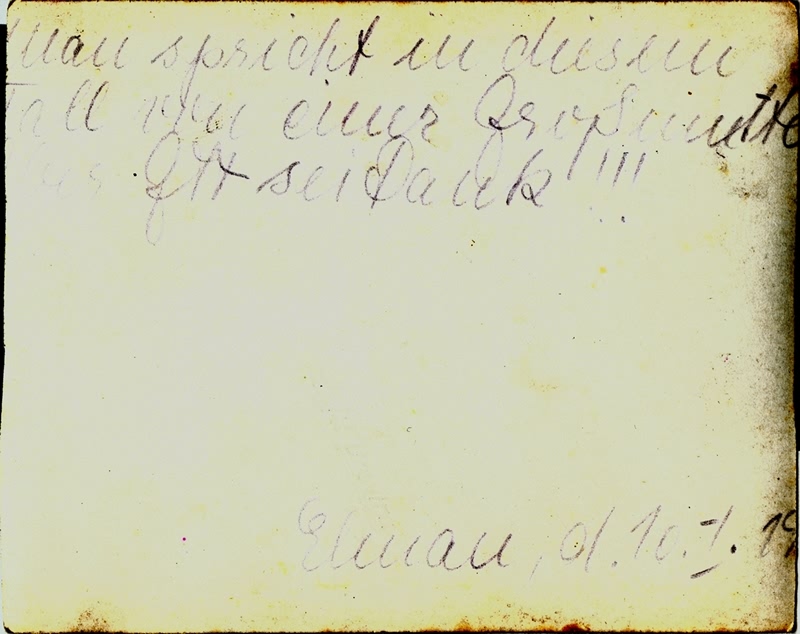 Man spricht in diesem
Fall von einer Großmutte
Gott sei Dank!!!
Elmau, d. 10. I. 19